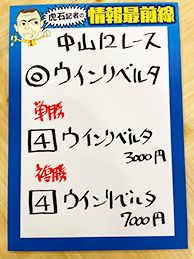 虎石記者の
情報最前線
中山12レース
◎ウインリベルタ
単勝
4 ウインリベルタ
3000円
複勝
4 ウインリベルタ
7000円